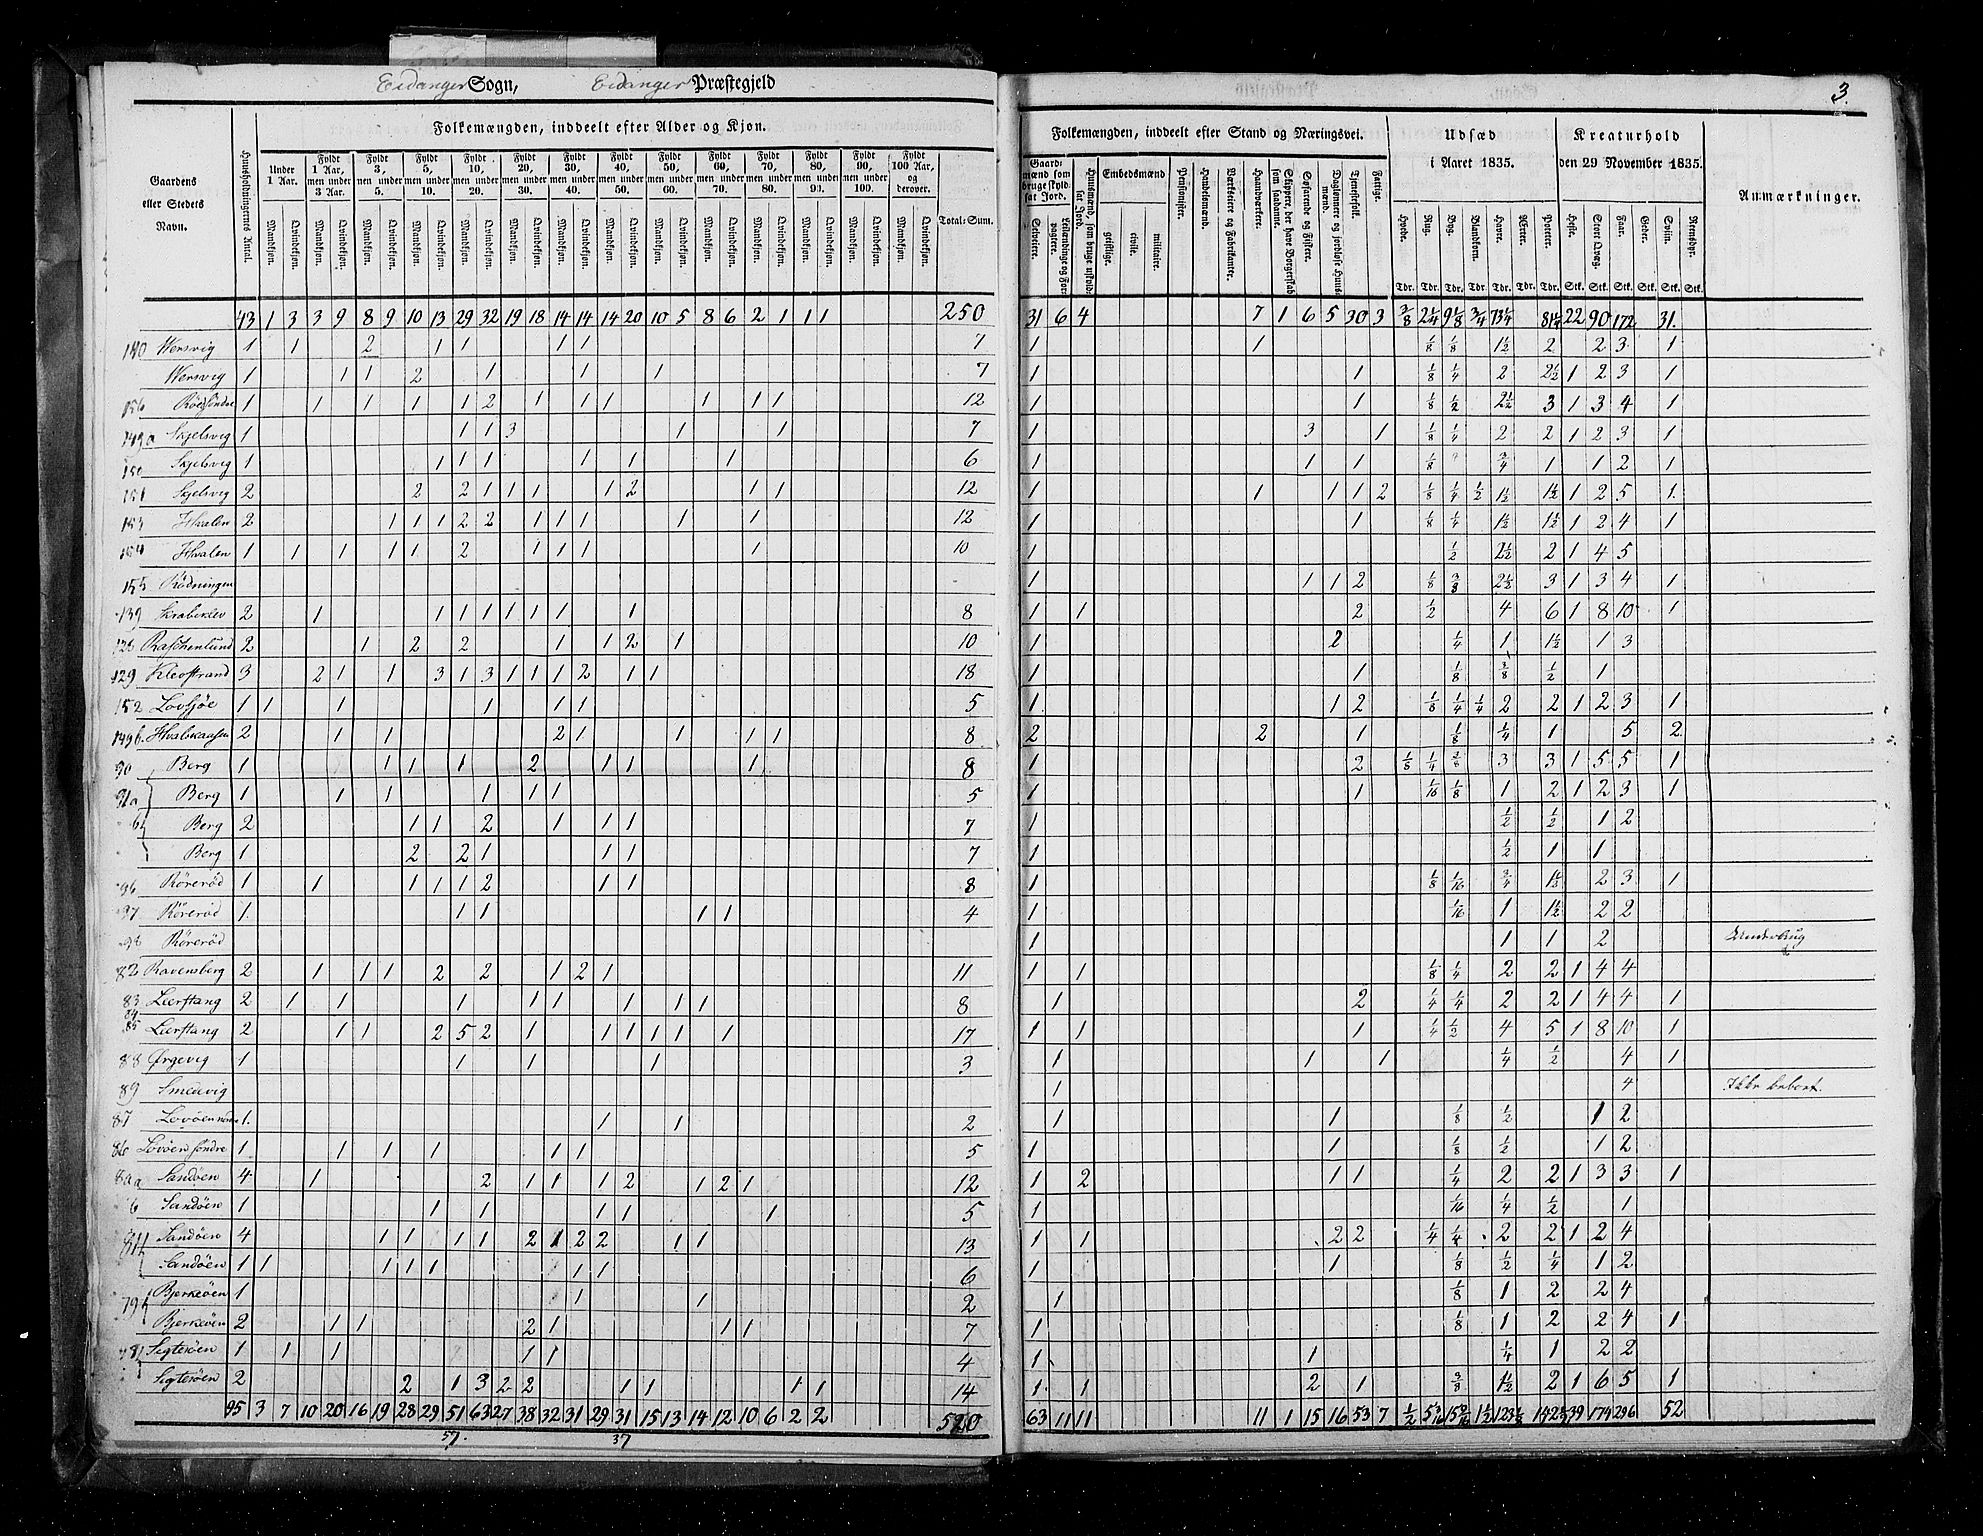 Eidanger Sogn, Eidanger Præstegjeld
3.
Gaardens eller Stedets Navn.
Huusholdningernes Antal.
Folkemængden, inddeelt efter Alder og Kjøn.
Under 1 Aar.
Fyldt 1 Aar, men under 3 Aar.
Fyldt 3, men under 5.
Fyldt 5, men under 10.
Fyldt 10, men under 20.
Fyldt 20, men under 30.
Fyldt 30, men under 40.
Fyldt 40, men under 50.
Fyldt 50, men under 60.
Fyldt 60, men under 70.
Fyldt 70, men under 80.
Fyldt 80, men under 90.
Fyldt 90, men under 100.
Fyldt 100 Aar, og derover.
Mandkjøn. Qvindekjøn.
Total-Sum.
Folkemængden, inddeelt efter Stand og Næringsvei.
Gaardmænd som bruge skyldsat Jord.
Selveiere.
Leilændinge og Forpagtere.
Huusmænd, som bruge uskyldsat Jord.
Embedsmænd
geistlige.
civile.
militaire.
Pensionister.
Handelsmænd.
Værkseiere og Fabrikanter.
Haandværkere.
Skippere, der have Borgerskab som saadanne.
Søfarende og Fiskere.
Daglønnere og jordløse Huusmænd.
Tjenestefolk.
Fattige.
Udsæd i Aaret 1835.
Hvede. Rug. Byg. Blandkorn. Havre. Ærter. Poteter.
Tdr. Tdr. Tdr. Tdr. Tdr. Tdr. Tdr.
Kreaturhold den 29 November 1835.
Heste. Stort Qvæg. Faar. Geder. Sviin. Rensdyr.
Stk. Stk. Stk. Stk. Stk. Stk.
Anmærkninger.
43 1 3 3 9 8 9 10 13 29 32 19 18 14 14 14 20 10 5 8 6 2 1 1 1 250 31 6 4 7 1 6 5 30 3 3/8 2 1/4 9 1/8 3/4 73 1/4 81 1/4 22 90 172 31.
140 Wersvig 1 1 2 1 1 1 1 7 1 1 1/8 1/8 1 1/2 2 2 3 1
Wersvig 1 1 1 2 1 1 1 7 1 1 1/8 1/4 2 2 1/2 1 2 3 1
156 Röed søndre 1 1 1 1 1 2 1 1 1 1 1 1 12 1 1 1/8 1/2 2 1/2 3 1 3 4 1
149a Skjelsvig 1 1 1 3 1 1 7 1 3 1 1/8 1/4 2 2 1 2 3 1
150 Skjelsvig 1 1 1 1 1 1 1 6 1 1 1 1/8 3/4 1 1 2 1
151 Skjelsvig 2 2 2 1 1 1 1 2 1 1 12 1 1 1 1 2 1/8 1/4 1/2 1 1/2 1 1/2 1 2 5 1.
153 Hvalen 2 1 1 1 2 2 1 1 1 1 1 12 1 1 1/8 1/4 1 1/2 1 1/2 1 2 4 1
154 Hvalen 1 1 1 1 1 2 1 1 1 1 10 1 1/2 2 1/2 2 1 4 5
155 Rödningen 1 1 1 2 1/8 3/8 2 1/2 3 1 3 4 1
139 Skrabeklev 2 1 1 1 1 1 1 1 1 8 1 1 2 1/2 4 6 1 8 10 1
Raschenlund 2 1 2 2 1 1 2 1 10 1 2 1/4 1 1 1/2 1 3
129 Kleostrand 3 2 1 1 3 1 3 1 1 1 2 1 1 18 1 1 1/8 3/8 1/2 1
152 Lovsjøe 1 1 1 1 1 1 5 1. 1 2 1/8 1/4 1/4 2 2 1 2 3 1
149b. Hvalskaasen 2 1 1 2 1 1 1 1 8 2 2 1 1/8 1/4 1 5 2
90 Berg 1 1 1 1 2 1 1 1 8 1 2 1/8 1/4 3/8 3 3 1 5 5 1
91a Berg 1 1 1 1 1 1 5 1 1 1/16 1/8 1 2 1 2 3 1
b Berg 2 1 1 2 1 1 1 7 1 1/2 1/2 1 2
Berg 1 2 2 1 1 1 7 1 1/2 1 1
96 Rörerød 1 1 1 1 1 2 1 1 8 1 1/8 1/16 3/4 1 1/2 2 3 1
97 Rörerød 1. 1 1 1 1 4 1 1/16 1 1 1/2 2 2
98 Rörerød 1 1 1 2 Underbrug
82 Ravensberg 2 1 1 1 2 2 1 2 1 11 1 1 1/8 1/4 2 2 1 4 4
83 Leerstang 2 1 1 1 1 1 1 1 1 8 1 2 1/4 1/4 2 2 1 4 4 1
84 85 Leerstang 2 1 1 2 5 2 1 1 1 1 1 1 17 1 1 1 1/4 1/2 4 5 1 8 10 1
88 Ørgevig 1 1 1 1 3 1 1 1 1/4 1/2 4 1
89 Smedvig 1 4 Ikke beboet.
87 Lovöen nordre 1. 1 1 2 1 1 1/8 1/2 1 2
86 Lovöen søndre 1 1 1 1 1 1 5 1 1 1/8 1/2 1 2
80a Sandöen 4 1 2 1 1 1 2 1 2 1 12 1 2 1 1 1/4 2 2 1 3 3 1
b Sandöen 1 1 1 1 1 1 5 1 1/16 1/4 1/2 1
81 Sandöen 4 1 1 1 1 2 1 2 2 1 1 13 1 1 2 2 1/4 1/4 2 2 1 2 4
Sandöen 1 1 1 1 1 1 1 6 1 1 1/8 1/2 1/4 1 2
79 Bjerkeöen 1 1 1 2 1 1/8 1 2 2 4
Bjerkeöen 2 1 1 2 1 1 1 7 1 1/8 1 2 2 4 1
78 Sigteröen 1 1 1 1 1 4 1 1 1/4 1 2 2
Sigteröen 2 2 1 3 2 2 1 1 1 1 14 1 1 2 1 3/8 1 1/2 2 1 6 5 1
95 3 7 10 20 16 19 28 29 51 63 27 38 32 31 29 31 15 13 14 12 10 6 2 2 520 63 11 11 11 1 15 16 53 7 1/2 5 3/16 1 1/2 39 174 296 52
57. 37